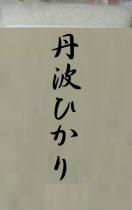 丹波ひかり